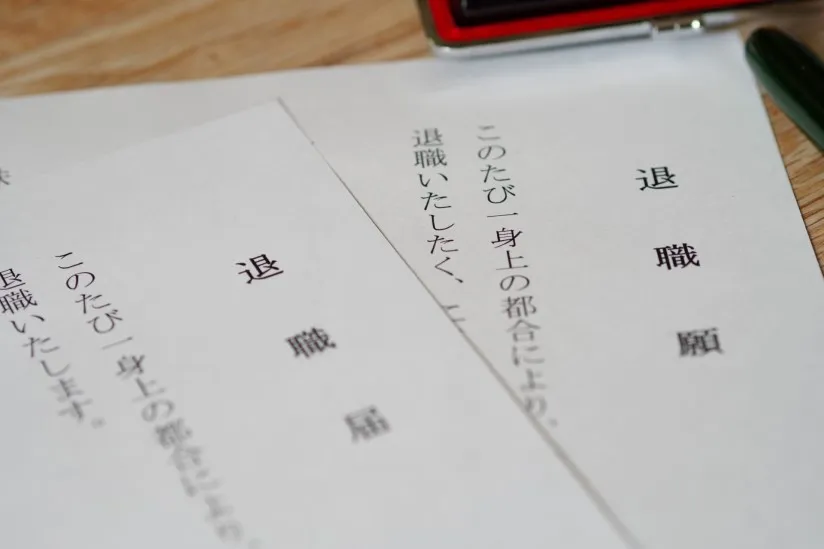 退職願
このたび一身上の都合により、
退職いたしたく、
退職届
このたび一身上の都合により、
退職いたします。